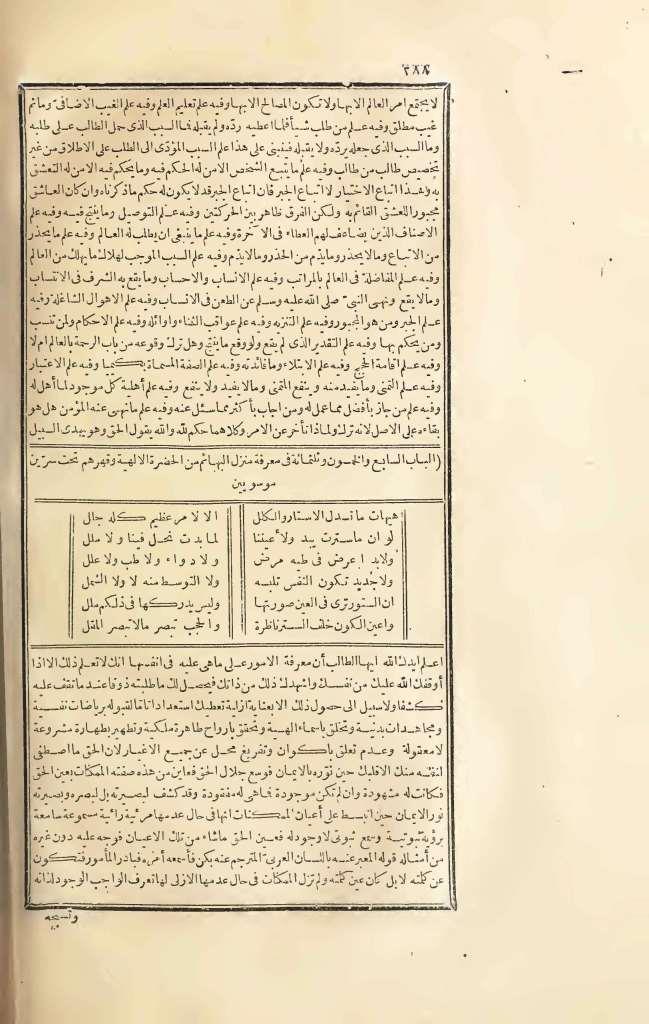 ٣٨٨
لا يجتمع امر العالم الا بها ولا تكون المصالح الا بها وفيه علم تعليم العلم وفيه علم الغيب الاضافى وماثم
غيب مطلق وفيه علم من طلب شيأ فلما اعطيه رده ولم يقبله فما السبب الذى حمل الطالب على طلبه
وما السبب الذى جعله يرده ولا يقبله فينبنى على هذا علم السبب المؤدى الى الطلب على الاطلاق من غير
تخصيص طالب من طالب وفيه علم ما يتبع الشخص الامن له الحكم فيه وما يحكم فيه الا من له التعشق
به وهذا اتباع الاختيار لا اتباع الجبر فان اتباع الجبر قد لا يكون له حكم ماذكرناه وان كان العاشق
مجبورا للعشق القائم به ولكن الفرق ظاهر بين الحركتين وفيه علم التوصيل وما ينتج فيه وفيه علم
الاصناف الذين يضاعف لهم العطاء فى الآخرة وفيه علم ما ينبغى ان يطلب له العالم وفيه علم ما يحذر
من الاتباع وما لا يحذر وما يذم من الحذر وما لا يذم وفيه علم السبب الموجب لهلاك ما يهلك من العالم
وفيه علم المفاضلة فى العالم بالمراتب وفيه علم الانساب والاحساب وما يقع به الشرف فى الانتساب
وما لا يقع ونهى النبى صلى الله عليه وسلم عن الطعن فى الانساب وفيه علم الاهوال الشاغلة وفيه
علم الجبر ومن هو المجبور وفيه علم التنزيه وفيه علم عواقب الثناء واوائله وفيه علم الاحكام ولمن تنسب
ومن يحكم بها وفيه علم التقدير الذى لم يقع ولو وقع ما ينتج وهل ترك وقوعه من باب الرحمة بالعالم ام لا
وفيه علم اقامة الحجج وفيه علم الابتلاء وما فائدته وفيه علم الصفة المسماة وفيه علم الاعتبار
وفيه علم التمنى وما يفيد منه وينتفع المتمنى وما لا يفيد ولا ينتفع وفيه علم أهلية كل موجود لما أهل له
وفيه علم من جاز بأفضل مما عمل له ومن اجاب بأكثر مما سئل عنه وفيه علم ما نهى عنه المؤمن هل هو
بقاءه على الاصل لانه ترك ولماذا تأخر عن الامر وكلاهما حكم لله والله يقول الحق وهو يهدى السبيل
(الباب السابع والخمسون وثلثمائة فى معرفة منزل البهائم من الحضرة الالهية وقهرهم تحت سرين
موسويين
هيهات ما تسدل الاستار والكلل الا لامر عظيم كله جلل
لو ان ما سترت يبد ولأعيننا لما بدت نحل فينا ولا ملل
ولابد اعرض فى طيه مرض ولا دواء ولا طب ولا علل
ولا جديد تكون النفس تلبسه ولا التوسط منه لا ولا السمل
ان الستور ترى فى العين صورتها وليس يدركها فى ذلكم ملل
واعين الكون خلف الستر ناظرة والحجب تبصر ما لا تبصر المقل
اعلم ايدك الله ايها الطالب أن معرفة الامور على ماهى عليه فى انفسها انك لا تعلم ذلك الا اذا
أوقفك الله عليك من نفسك واشهدك ذلك من ذاتك فيحصل لك ما طلبته ذوقا عندما تقف عليه
كشفا ولا سبيل الى حصول ذلك الا بعناية ازلية تعطيك استعدادا تاما لقبوله برياضات نفسية
ومجاهدات بدنية وتخلق باسماء الهية وتحقق بارواح طاهرة ملكية وتطهير بطهارة مشروعة
لا معقولة وعدم تعلق باكوان وتفريغ محل عن جميع الاغيار لان الحق ما اصطفى
لنفسه منك الا قلبك حين نوره بالايمان فوسع جلال الحق فعاين من هذه صفته الممكنات بعين الحق
فكانت له مشهودة وان لم تكن موجودة فما هى له مفقودة وقد كشف لبصيرته بل لبصره وبصيرته
نور الايمان حين انبسط على أعيان الممكنات انها فى حال عدمها مرئية رائية مسموعة سامعة
برؤية ثبوتية وسمع ثبوتى لا وجود له فعين الحق ماشاء من تلك الاعيان فوجه عليه دون غيره
من أمثاله قوله المعبر عنه باللسان العربى المترجم عنه بكن فأسمعه أمره فبادر المأمور فتكون
عن كلمته لا بل كان عين كلمته ولم تزل الممكنات فى حال عدمها الازلى لها تعرف الواجب الوجود لذاته
وتسبحه